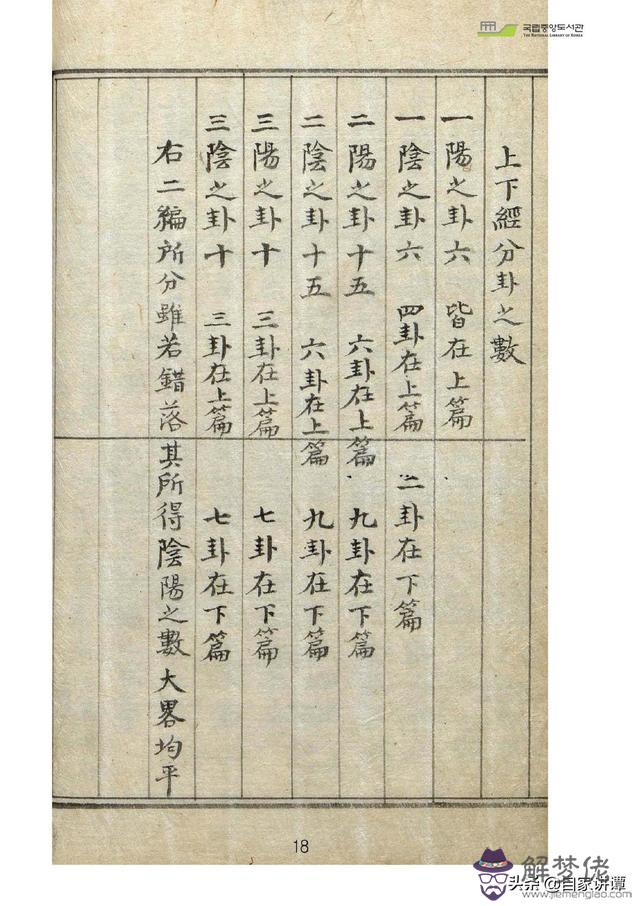 국립중앙도서관
THE NATIONAL LIBRARY OF KOREA
上下經分卦之數
一陽之卦六 皆在上篇
一陰之卦六 四卦在上篇 二卦在下篇
二陽之卦十五 六卦在上篇 九卦在下篇
二陰之卦十五 六卦在上篇 九卦在下篇
三陽之卦十 三卦在上篇 七卦在下篇
三陰之卦十 三卦在上篇 七卦在下篇
右二編所分雖若錯落其所得陰陽之數大畧均平
18
解梦佬
头条 @自家讲谭
www.jiemenglao.com